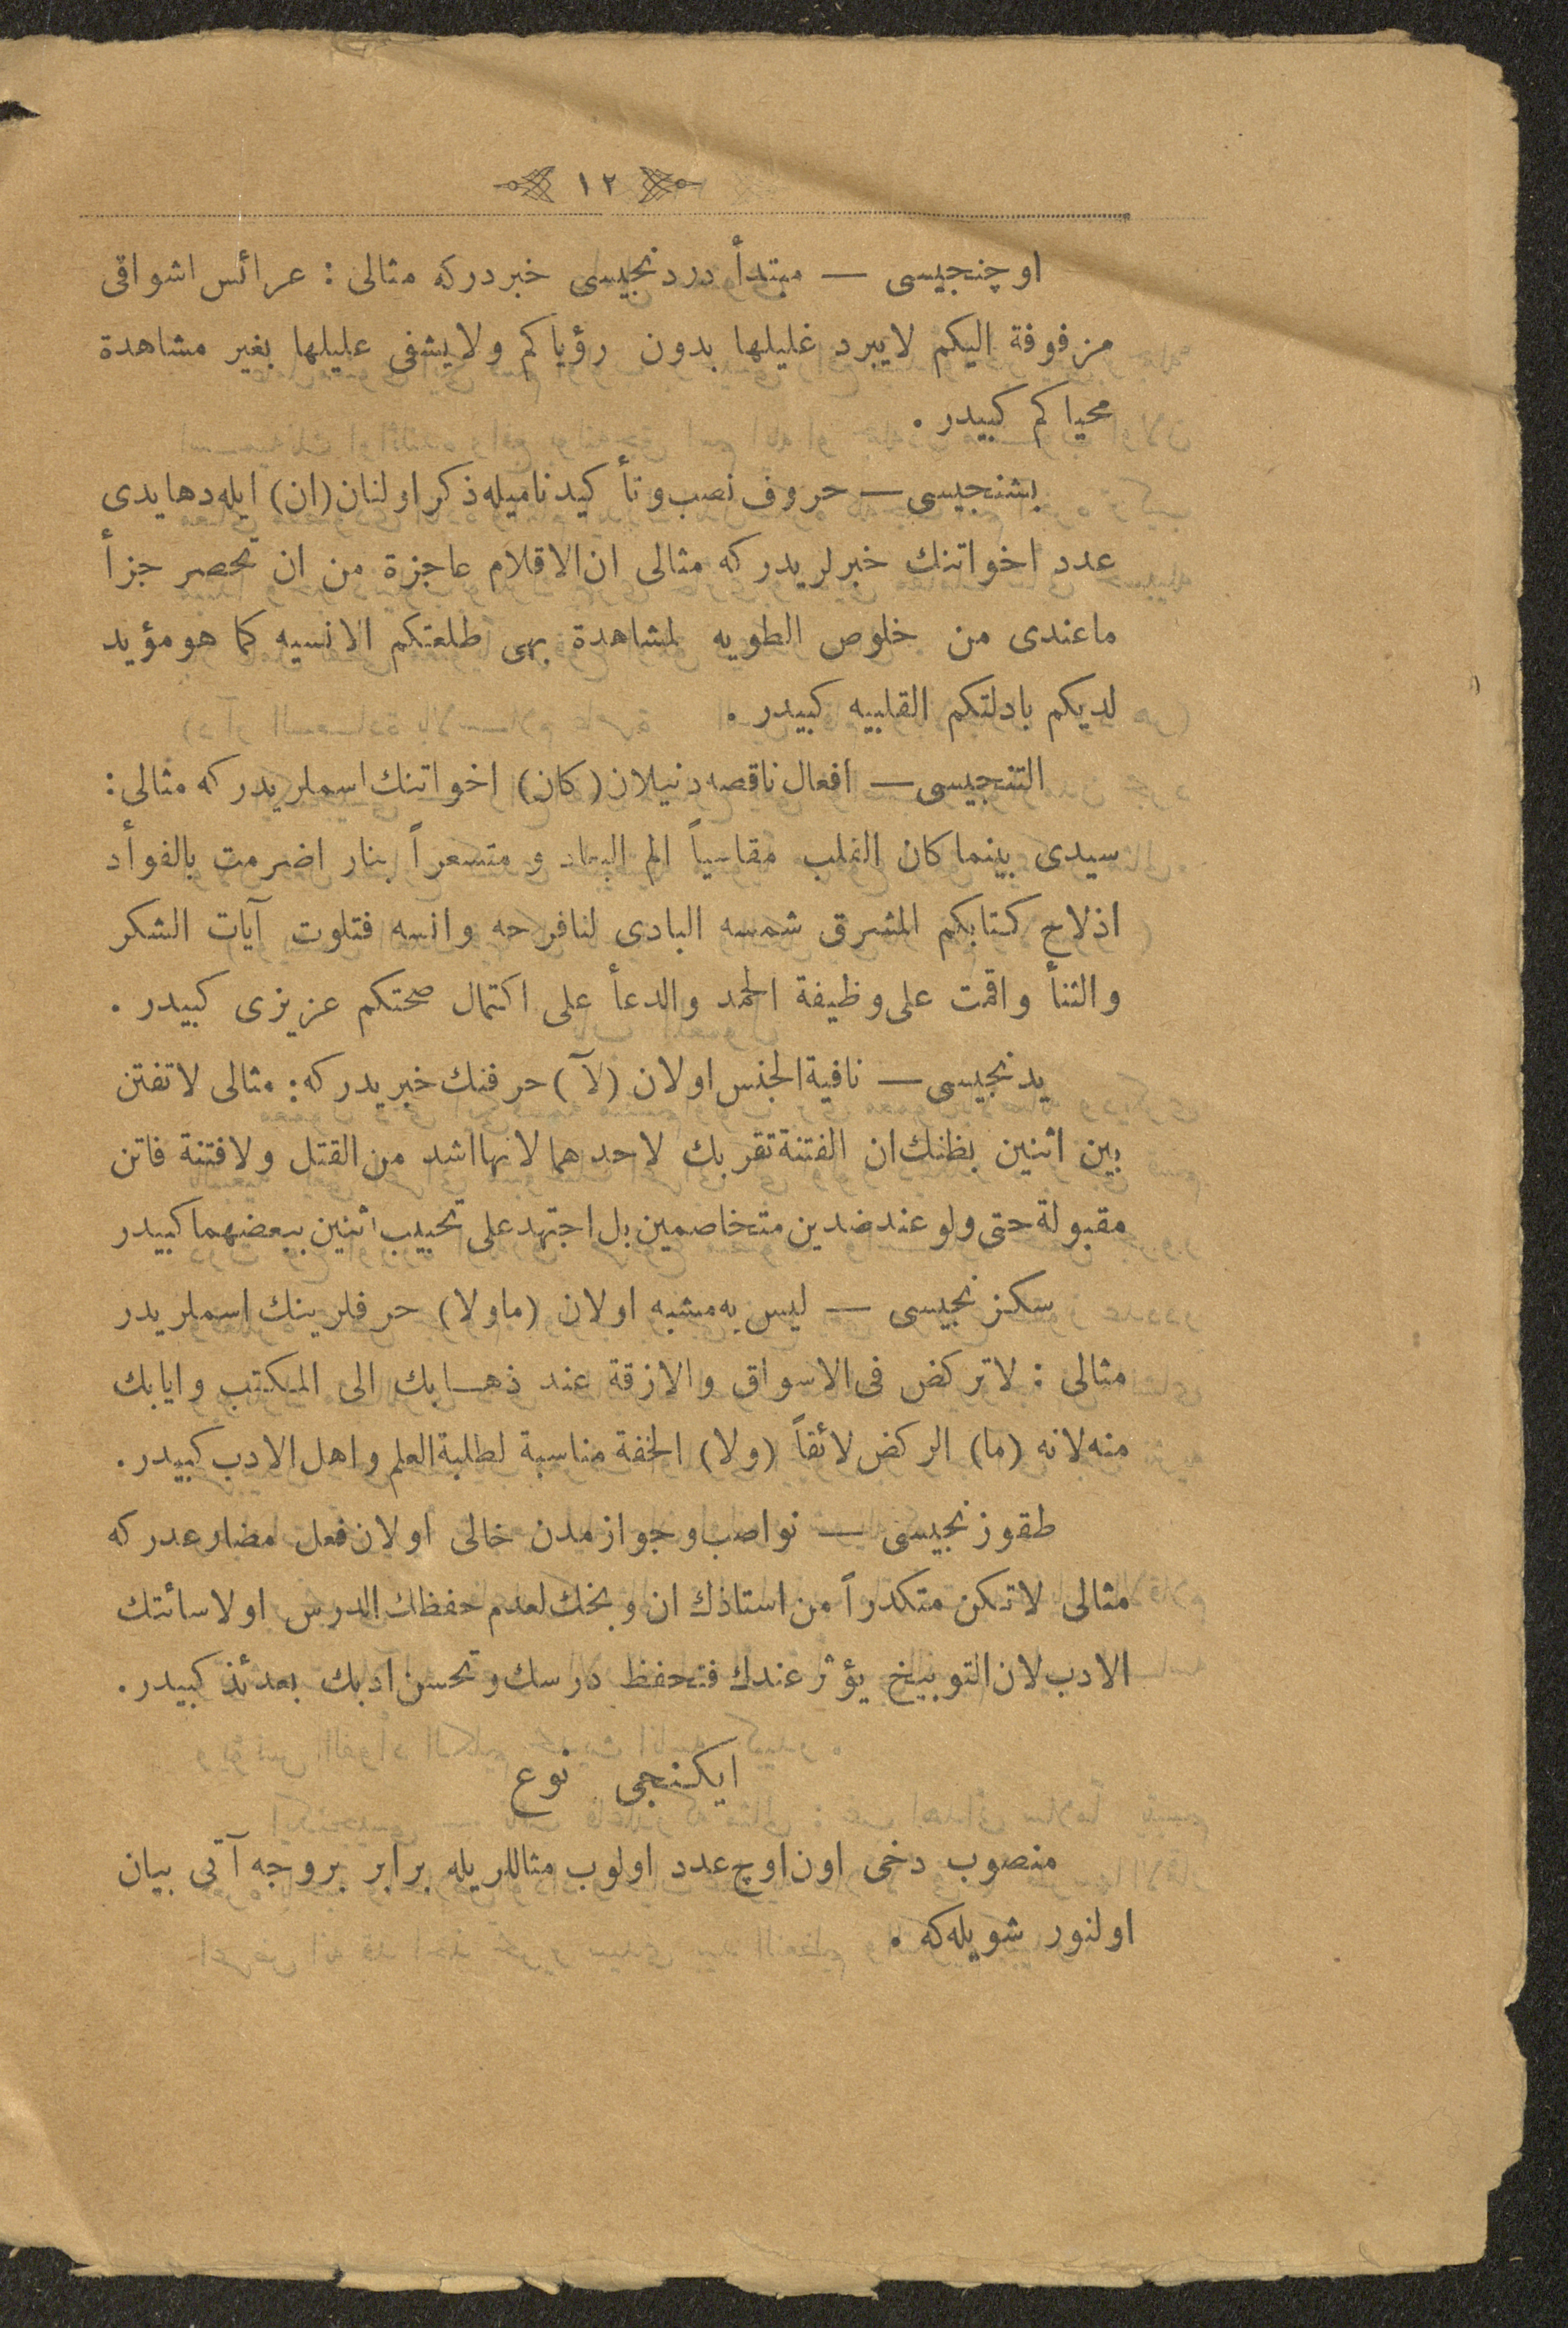 ١٢
اوچنجيسى — مبتدأ دردنجيسى خبردركه مثالى : عرائس اشواقى
مزفوفة اليكم لايبرد غليلها بدون رؤياكم ولايشفى عليلها بغير مشاهدة
محياكم كبيدر .
بشنجيسى — حروف نصب وتأكيد ناميله ذكر اولنان (ان) ايله دها يدى
عدد اخواتنك خبرلريدركه مثالى ان الاقلام عاجزة من ان تحصر جزأ
ماعندى من خلوص الطويه لمشاهدة بهى طلعتكم الانسيه كما هو مؤيد
لديكم بادلتكم القلبيه كبيدر .
التنجيسى — افعال ناقصه دنيلان (كان) اخواتنك اسملريدركه مثالى :
سيدى بينما كان القلب مقاسياً الم البعاد و متسعراً بنار اضرمت بالفوأد
اذلاح كتابكم المشرق شمسه البادى لنافرحه وانسه فتلوت آيات الشكر
والثنأ واقمت على وظيفة الحمد والدعأ على اكتمال صحتكم عزيزى كبيدر .
يدنجيسى — نافية الجنس اولان (لآ) حرفنك خبريدركه : مثالى لاتفتن
بين اثنين بظنك ان الفتنة تقربك لاحدهما لانها اشد من القتل ولافتنة فاتن
مقبولة حتى ولو عند ضدين متخاصمين بل اجتهد على تحبيب اثنين ببعضهما كبيدر
سكزنجيسى — ليس به مشبه اولان (ماولا) حرفلرينك اسملريدر
مثالى : لاتركض فى الاسواق والازقة عند ذهابك الى المكتب وايابك
منه لانه (ما) الركض لائقاً (ولا) الخفة مناسبة لطلبة العلم واهل الادب كبيدر .
طقوزنجيسى — نواصب و جوازمدن خالى اولان فعل مضارعدركه
مثالى لاتكن متكدراً من استاذك ان وبخك لعدم حفظك الدرس اولاسائتك
الادب لان التوبيخ يؤثر عندك فتحفظ درسك وتحسن ادبك بعدئذ كبيدر .
ايكنجى نوع
منصوب دخى اون اوچ عدد اولوب مثاللريله برابر بروجه آتى بيان
اولنور شويله كه .